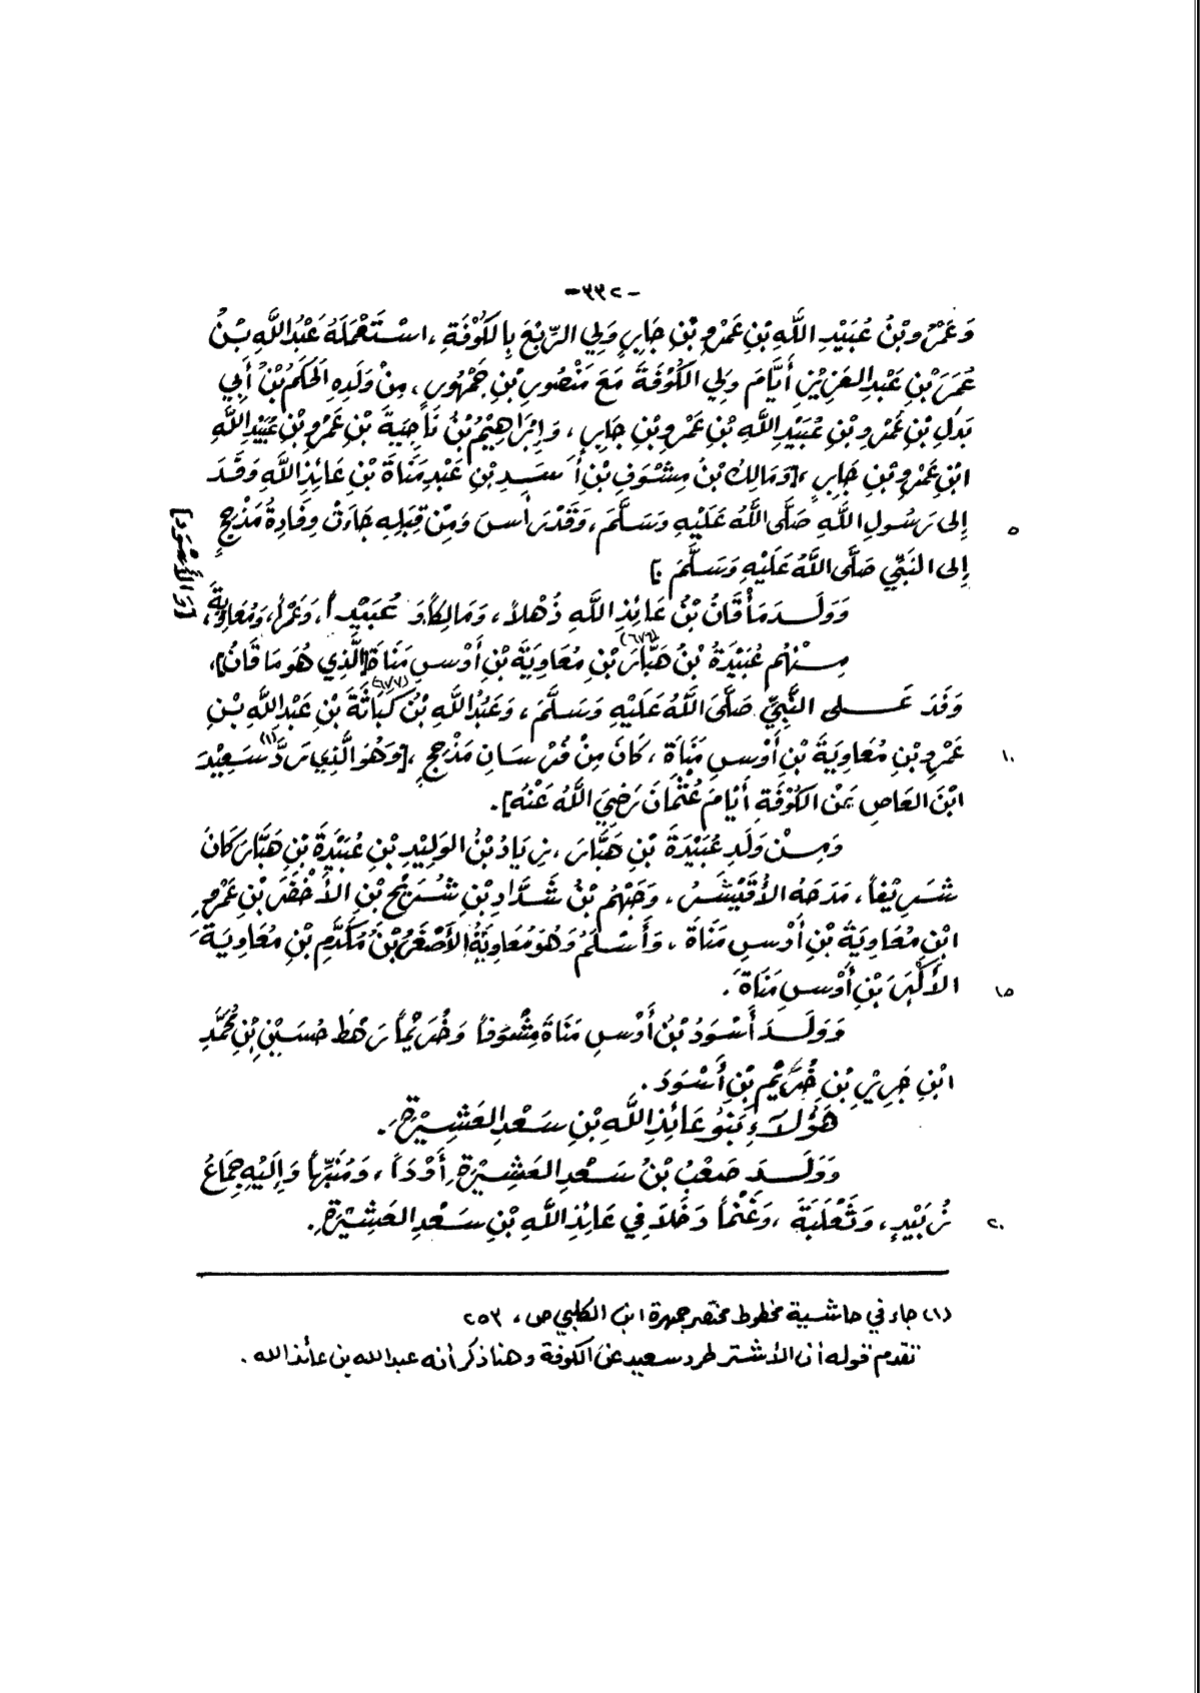 -٣٣٢-
وَعَمْرُو بْنُ عُبَيْدِ اللَّهِ بْنِ عَمْرِو بْنِ جَابِرٍ وَلِي الرَّبْعَ بِالكُوْفَةِ ، اسْتَعْمَلَهُ عَبْدُ اللَّهِ بْنُ
عُمَرَ بْنِ عَبْدِ العَزِيْزِ أَيَّامَ وَلِي الكُوْفَةَ مَعَ مَنْصُورِ بْنِ جَمْهُورٍ ، مِنْ وَلَدِهِ الحَكَمُ بْنُ أَبِي
بَدَلِ بْنِ عَمْرِو بْنِ عُبَيْدِ اللَّهِ بْنِ عَمْرِو بْنِ جَابِرٍ ، وَإِبْرَاهِيْمُ بْنُ نَاجِيَةَ بْنِ عَمْرِو بْنِ عُبَيْدِ اللَّهِ
ابْنِ عَمْرِو بْنِ جَابِرٍ ، [وَمَالِكُ بْنُ مِشْوَفِ بْنِ أَسَدِ بْنِ عَبْدِ مَنَاةَ بْنِ عَائِذِ اللَّهِ وَفَدَ
إِلى رَسُولِ اللَّهِ صَلَّى اللَّهُ عَلَيْهِ وَسَلَّمَ ، وَقَدْ رَأَسَ وَمِنْ قِبَلِهِ جَاءَتْ وِفَادَةُ مَذْحِجٍ ٥
إِلى النَّبِيِّ صَلَّى اللَّهُ عَلَيْهِ وَسَلَّمَ .]
وَوَلَدَ مَأْقَانُ بْنُ عَائِذِ اللَّهِ ذُهْلاً ، وَمَالِكاً ، وَعُبَيْداً ، وَعَمْراً ، وَمُعَاوِيَةَ ،
[وَالأَسْوَدَ]
مِنْهُم عُبَيْدَةُ بْنُ هَبَّارَ (٦٧٦) بْنِ مُعَاوِيَةَ بْنِ أَوْسِ مَنَاةَ [الَّذِي هُوَ مَاقَانُ] ،
وَفَدَ عَلى النَّبِيِّ صَلَّى اللَّهُ عَلَيْهِ وَسَلَّمَ ، وَعَبْدُ اللَّهِ بْنُ كَبَاثَةَ (٦٧٧) بْنِ عَبْدِ اللَّهِ بْنِ
عَمْرِو بْنِ مُعَاوِيَةَ بْنِ أَوْسِ مَنَاةَ ، كَانَ مِنْ فُرْسَانِ مَذْحِجٍ ، [وَهُوَ الَّذِي رَدَّ (١) سَعِيْدَ ١٠
ابْنَ العَاصِ عَنْ الكُوْفَةِ أَيَّامَ عُثْمَانَ رَضِيَ اللَّهُ عَنْهُ] .
وَمِنْ وَلَدِ عُبَيْدَةَ بْنِ هَبَّارَ ، زِيَادُ بْنُ الوَلِيْدِ بْنِ عُبَيْدَةَ بْنِ هَبَّارَ كَانَ
شَرِيْفاً ، مَدَحَهُ الأُقَيْشِرُ ، وَجَهْمُ بْنُ شَدَّادِ بْنِ شُرَيْحِ بْنِ الأَخْضَرَ بْنِ عَمْرِو
ابْنِ مُعَاوِيَةَ بْنِ أَوْسِ مَنَاةَ ، وَأَسْلَمُ وَهُوَ مُعَاوِيَةُ الأَصْغَرُ بْنُ مُكَدَّمِ بْنِ مُعَاوِيَةَ
الأَكْبَرَ بْنِ أَوْسِ مَنَاةَ . ١٥
وَوَلَدَ أَسْوَدُ بْنُ أَوْسِ مَنَاةَ مِشْوَفاً وَخُرَيْماً رَهْطَ حُسَيْنِ بْنِ مُحَمَّدِ
ابْنِ جَرِيْرِ بْنِ خُرَيْمِ بْنِ أَسْوَدَ .
هَؤُلَاءِ بَنُو عَائِذِ اللَّهِ بْنِ سَعْدِ العَشِيْرَةِ .
وَوَلَدَ صَعْبُ بْنُ سَعْدِ العَشِيْرَةِ أَوْدَاً ، وَمُنَبِّهاً وَإِلَيْهِ جِمَاعُ
زُبَيْدٍ ، وَثَعْلَبَةَ ، وَغَنْماً دَخَلَا فِي عَائِذِ اللَّهِ بْنِ سَعْدِ العَشِيْرَةِ . ٢٠
(١) جاء في حاشية مخطوط مختصر جمهرة ابن الكلبي ص ، ٢٥٣
تقدم قوله أن الأشتر طرد سعيد عن الكوفة وهنا ذكر أنه عبد الله بن عائذ الله .